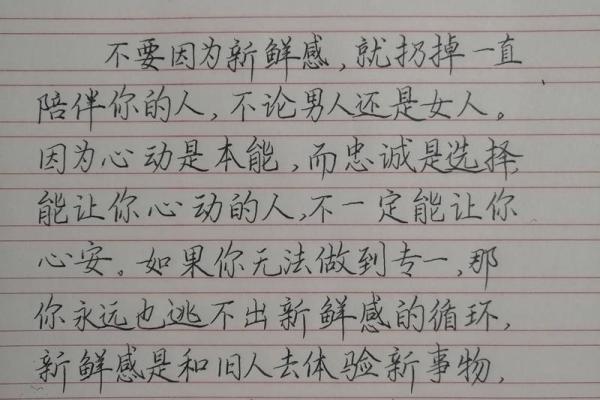 不要因为新鲜感,就扔掉一直
陪伴你的人,不论男人还是女人。
因为心动是本能,而忠诚是选择,
能让你心动的人,不一定能让你
心安。如果你无法做到专一,那
你永远也逃不出新鲜感的循环,
新鲜感是和旧人去体验新事物,